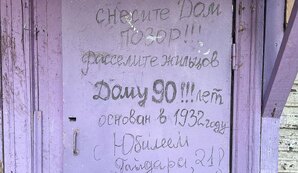 снесите Дом
позор!!!
расселите жильцов
Дому 90!!! лет
основан в 1932 году
с Юбилеем
Гайдара, 21?